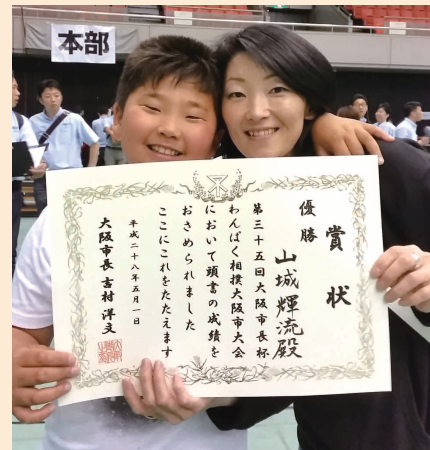 本部
賞状
優勝
山城輝流殿
第三十五回大阪市長杯
わんぱく相撲大阪市大会
において頭書の成績を
おさめられました
ここにこれをたたえます
平成二十八年五月一日
大阪市長 吉村洋文